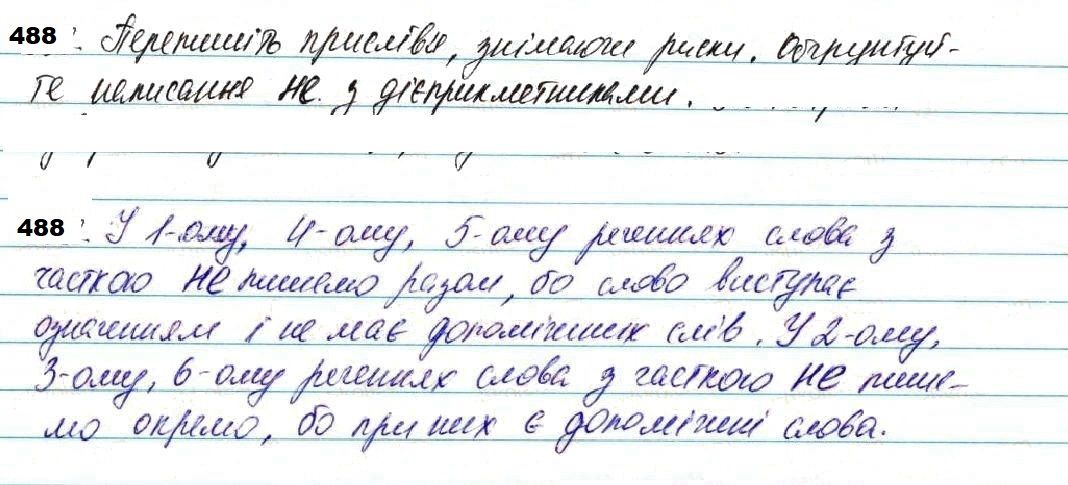 488. Перепишіть прислівя, знімаючи риски. Обгрунтуй-
те написання не з дієприкметниками.
488. У 1-ому, 4-ому, 5-ому реченнях слова з
часткою не пишемо разом, бо слово виступає
означенням і не має допоміжних слів. У 2-ому,
3-ому, 6-ому реченнях слова з часткою не пише-
мо окремо, бо при них є допоміжні слова.